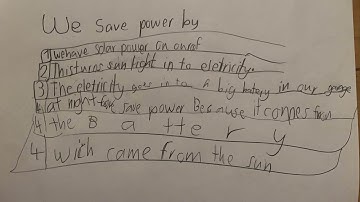 We save power by
1 we have solar power on or rof
2 This turns sun light in to eletricity.
3 The eletricity goes in to a big batery in our garage
4 at night we save power Because it comes from
4 the B a tte r y
4 wich came from the sun